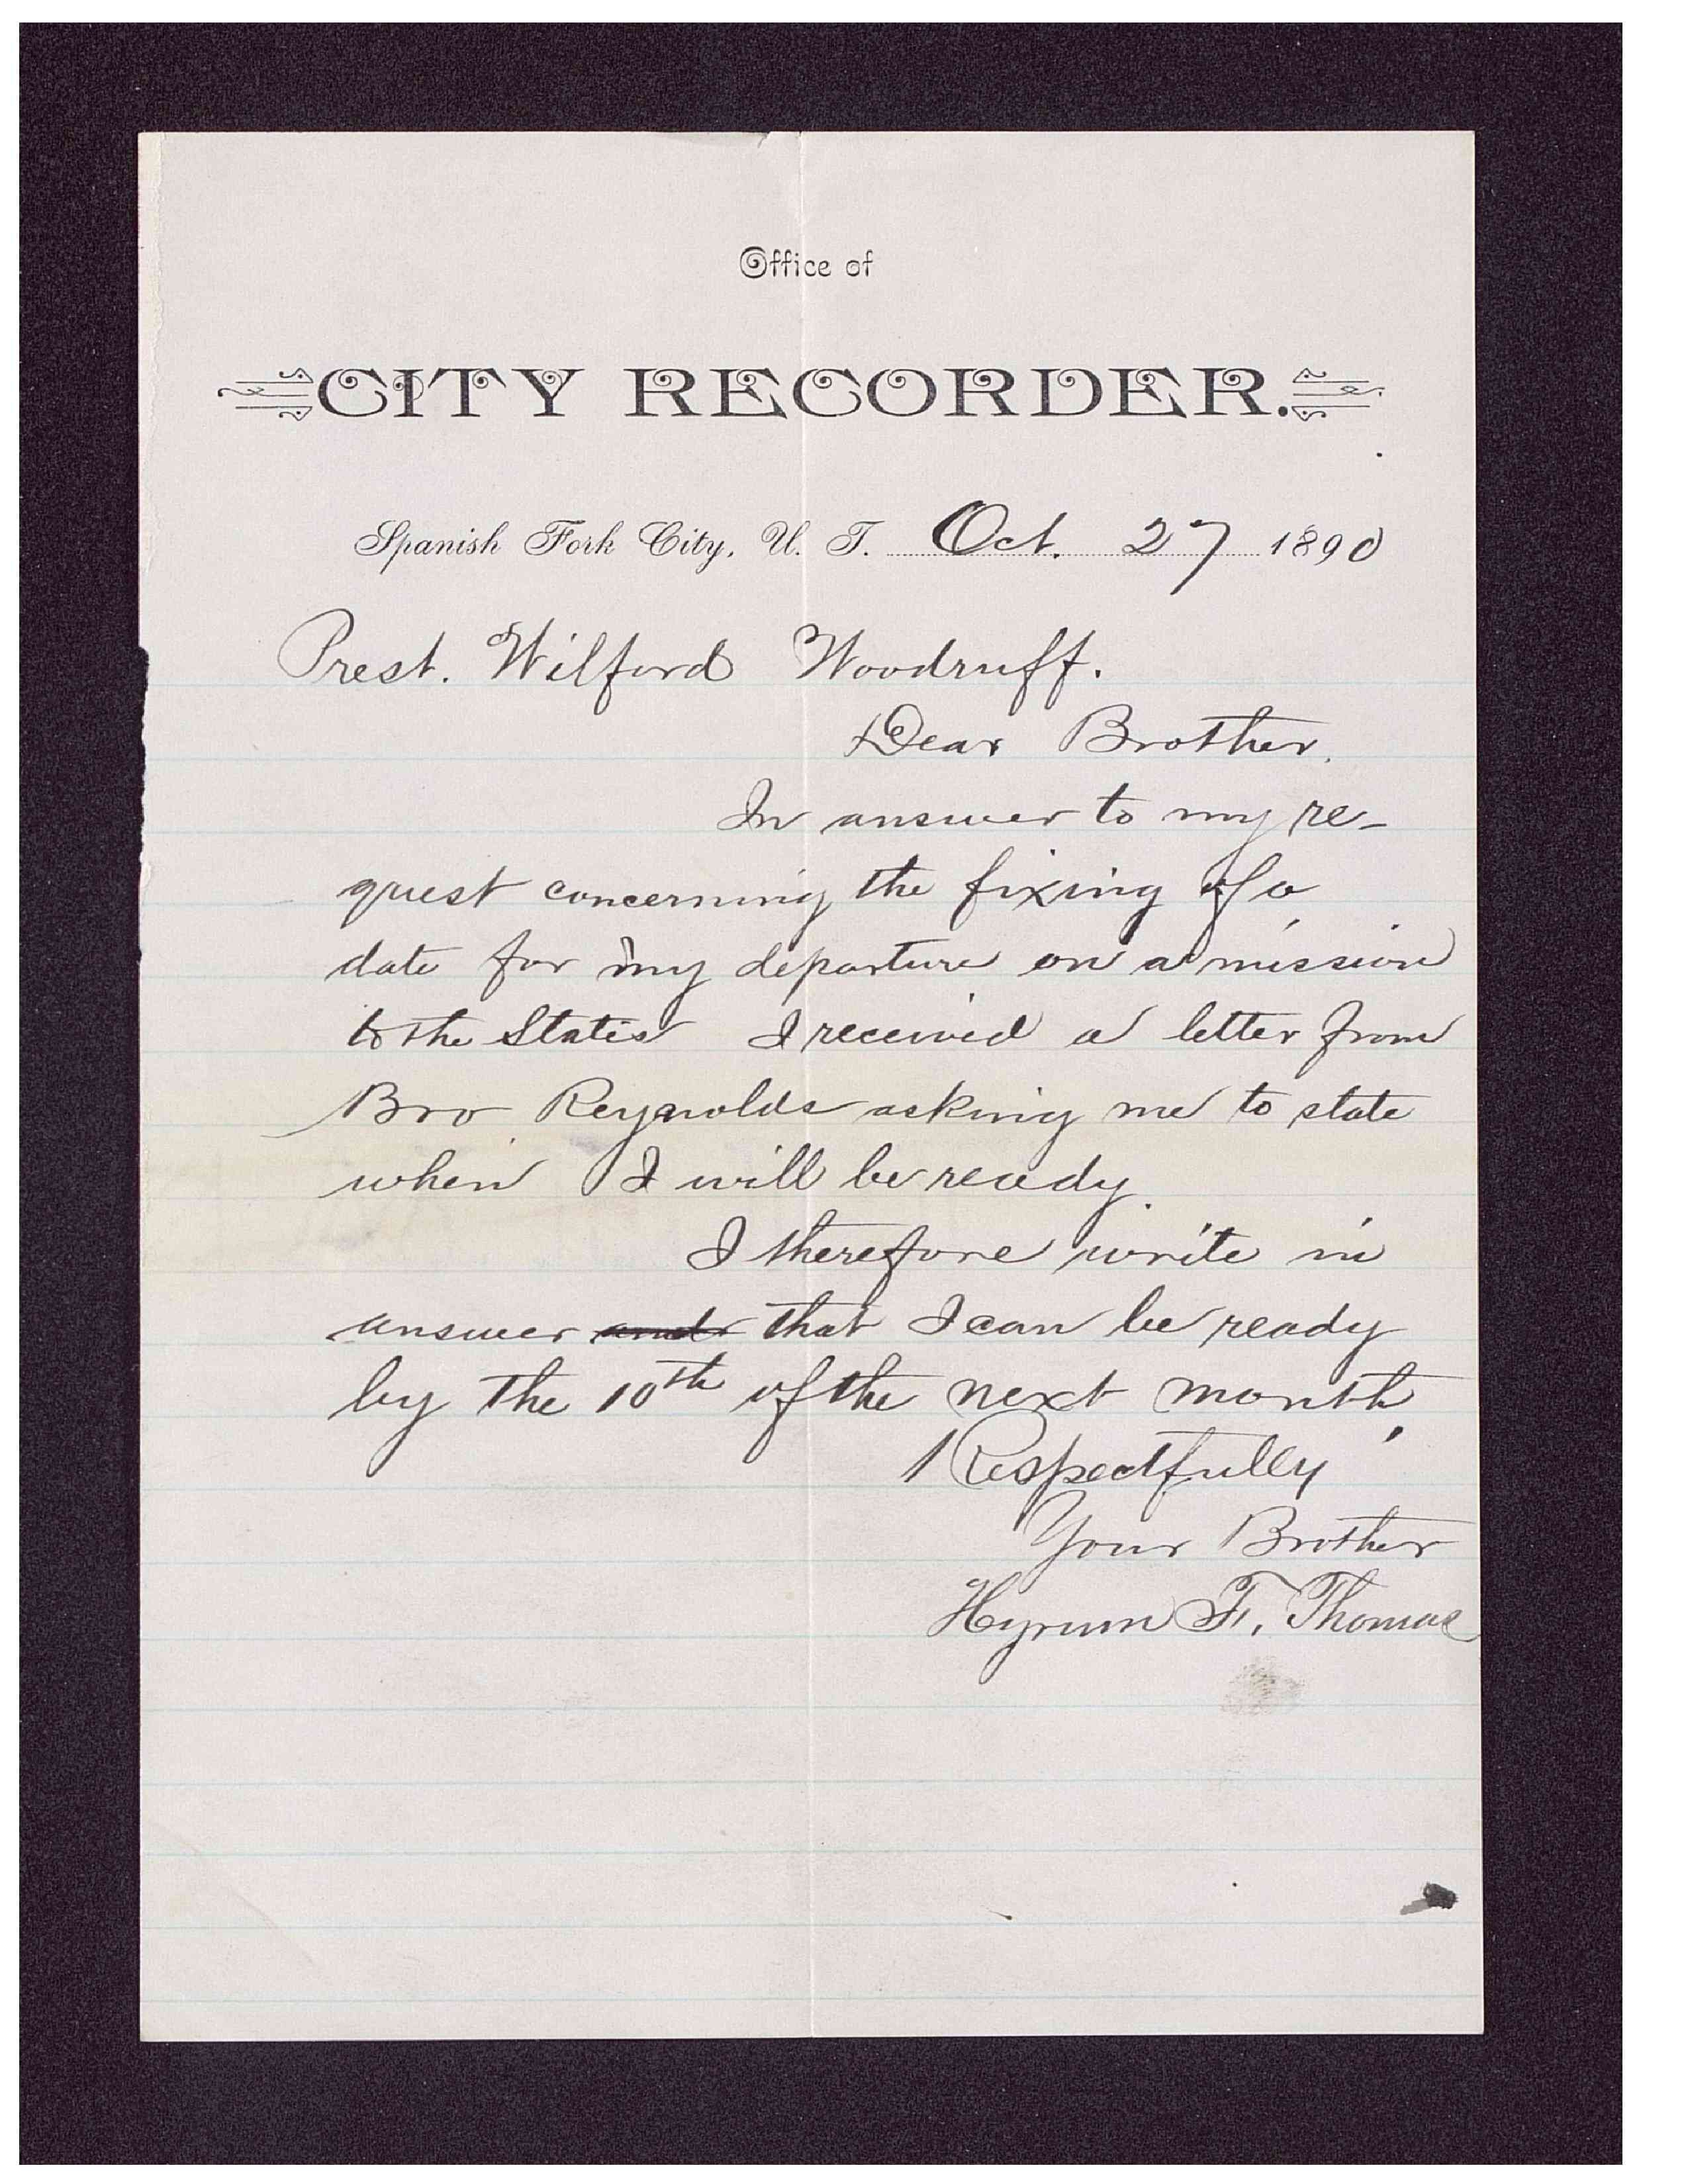 Office of
CITY RECORDER.
Spanish Fork City, U. T. Oct. 27 1890
Prest. Wilford Woodruff.
Dear Brother.
In answer to my re-
quest concerning the fixing of a
date for my departure on a mission
to the States I received a letter from
Bro Reynolds asking me to state
when I will be ready.
I therefore write in
answer and that I can be ready
by the 10th of the next month.
Respectfully
Your Brother
Hyrum F. Thomas